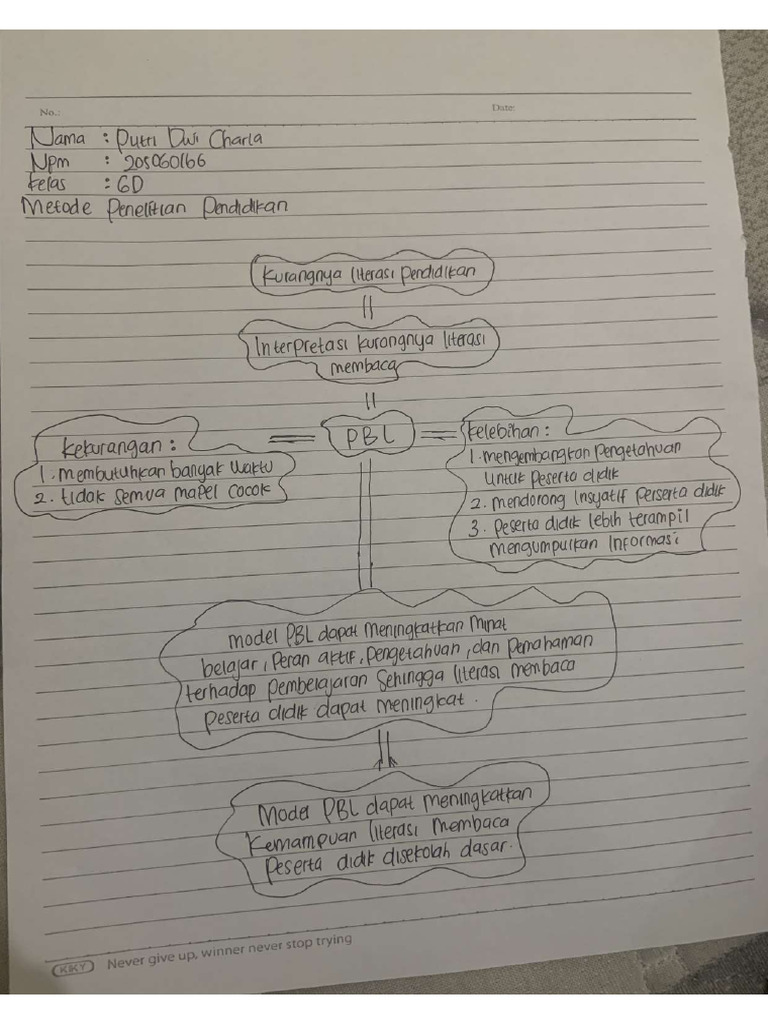 No.:
Date:
Nama : Putri Dwi Charla
Npm : 205060166
Kelas : 6D
Metode Penelitian Pendidikan
Kurangnya literasi pendidikan
Interpretasi kurangnya literasi
membaca
PBL
Kekurangan :
1. membutuhkan banyak waktu
2. tidak semua mapel cocok
Kelebihan :
1. mengembangkan pengetahuan
untuk peserta didik
2. mendorong insyatif perserta didik
3. peserta didik lebih terampil
mengumpulkan informasi
model PBL dapat meningkatkan minat
belajar, peran aktif, pengetahuan, dan pemahaman
terhadap pembelajaran sehingga literasi membaca
peserta didik dapat meningkat.
Model PBL dapat meningkatkan
kemampuan literasi membaca
peserta didik disekolah dasar.
KKY Never give up, winner never stop trying